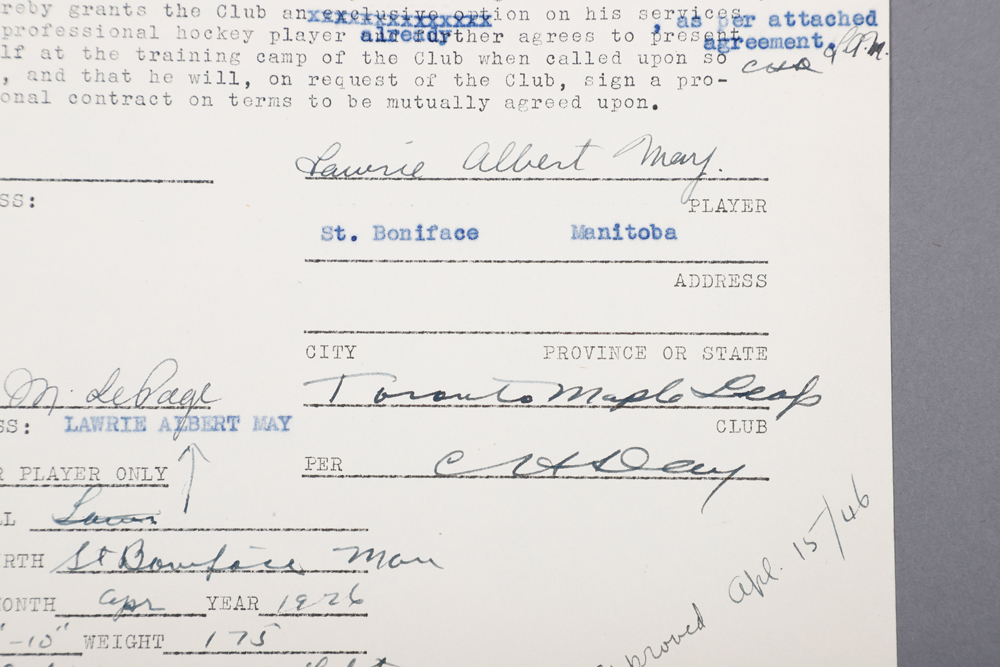 reby grants the Club an exclusive option on his services, as per attached
professional hockey player already further agrees to present agreement. L.A.M.
lf at the training camp of the Club when called upon so CHD
, and that he will, on request of the Club, sign a pro-
onal contract on terms to be mutually agreed upon.
Lawrie Albert May.
SS:
PLAYER
St. Boniface Manitoba
ADDRESS
CITY PROVINCE OR STATE
M. LePage
Toronto Maple Leafs
SS: LAWRIE ALBERT MAY
CLUB
R PLAYER ONLY
PER C H Day
L
RTH St Boniface Man
MONTH Apr YEAR 1926
"-10" WEIGHT 175
Approved Apl. 15/46